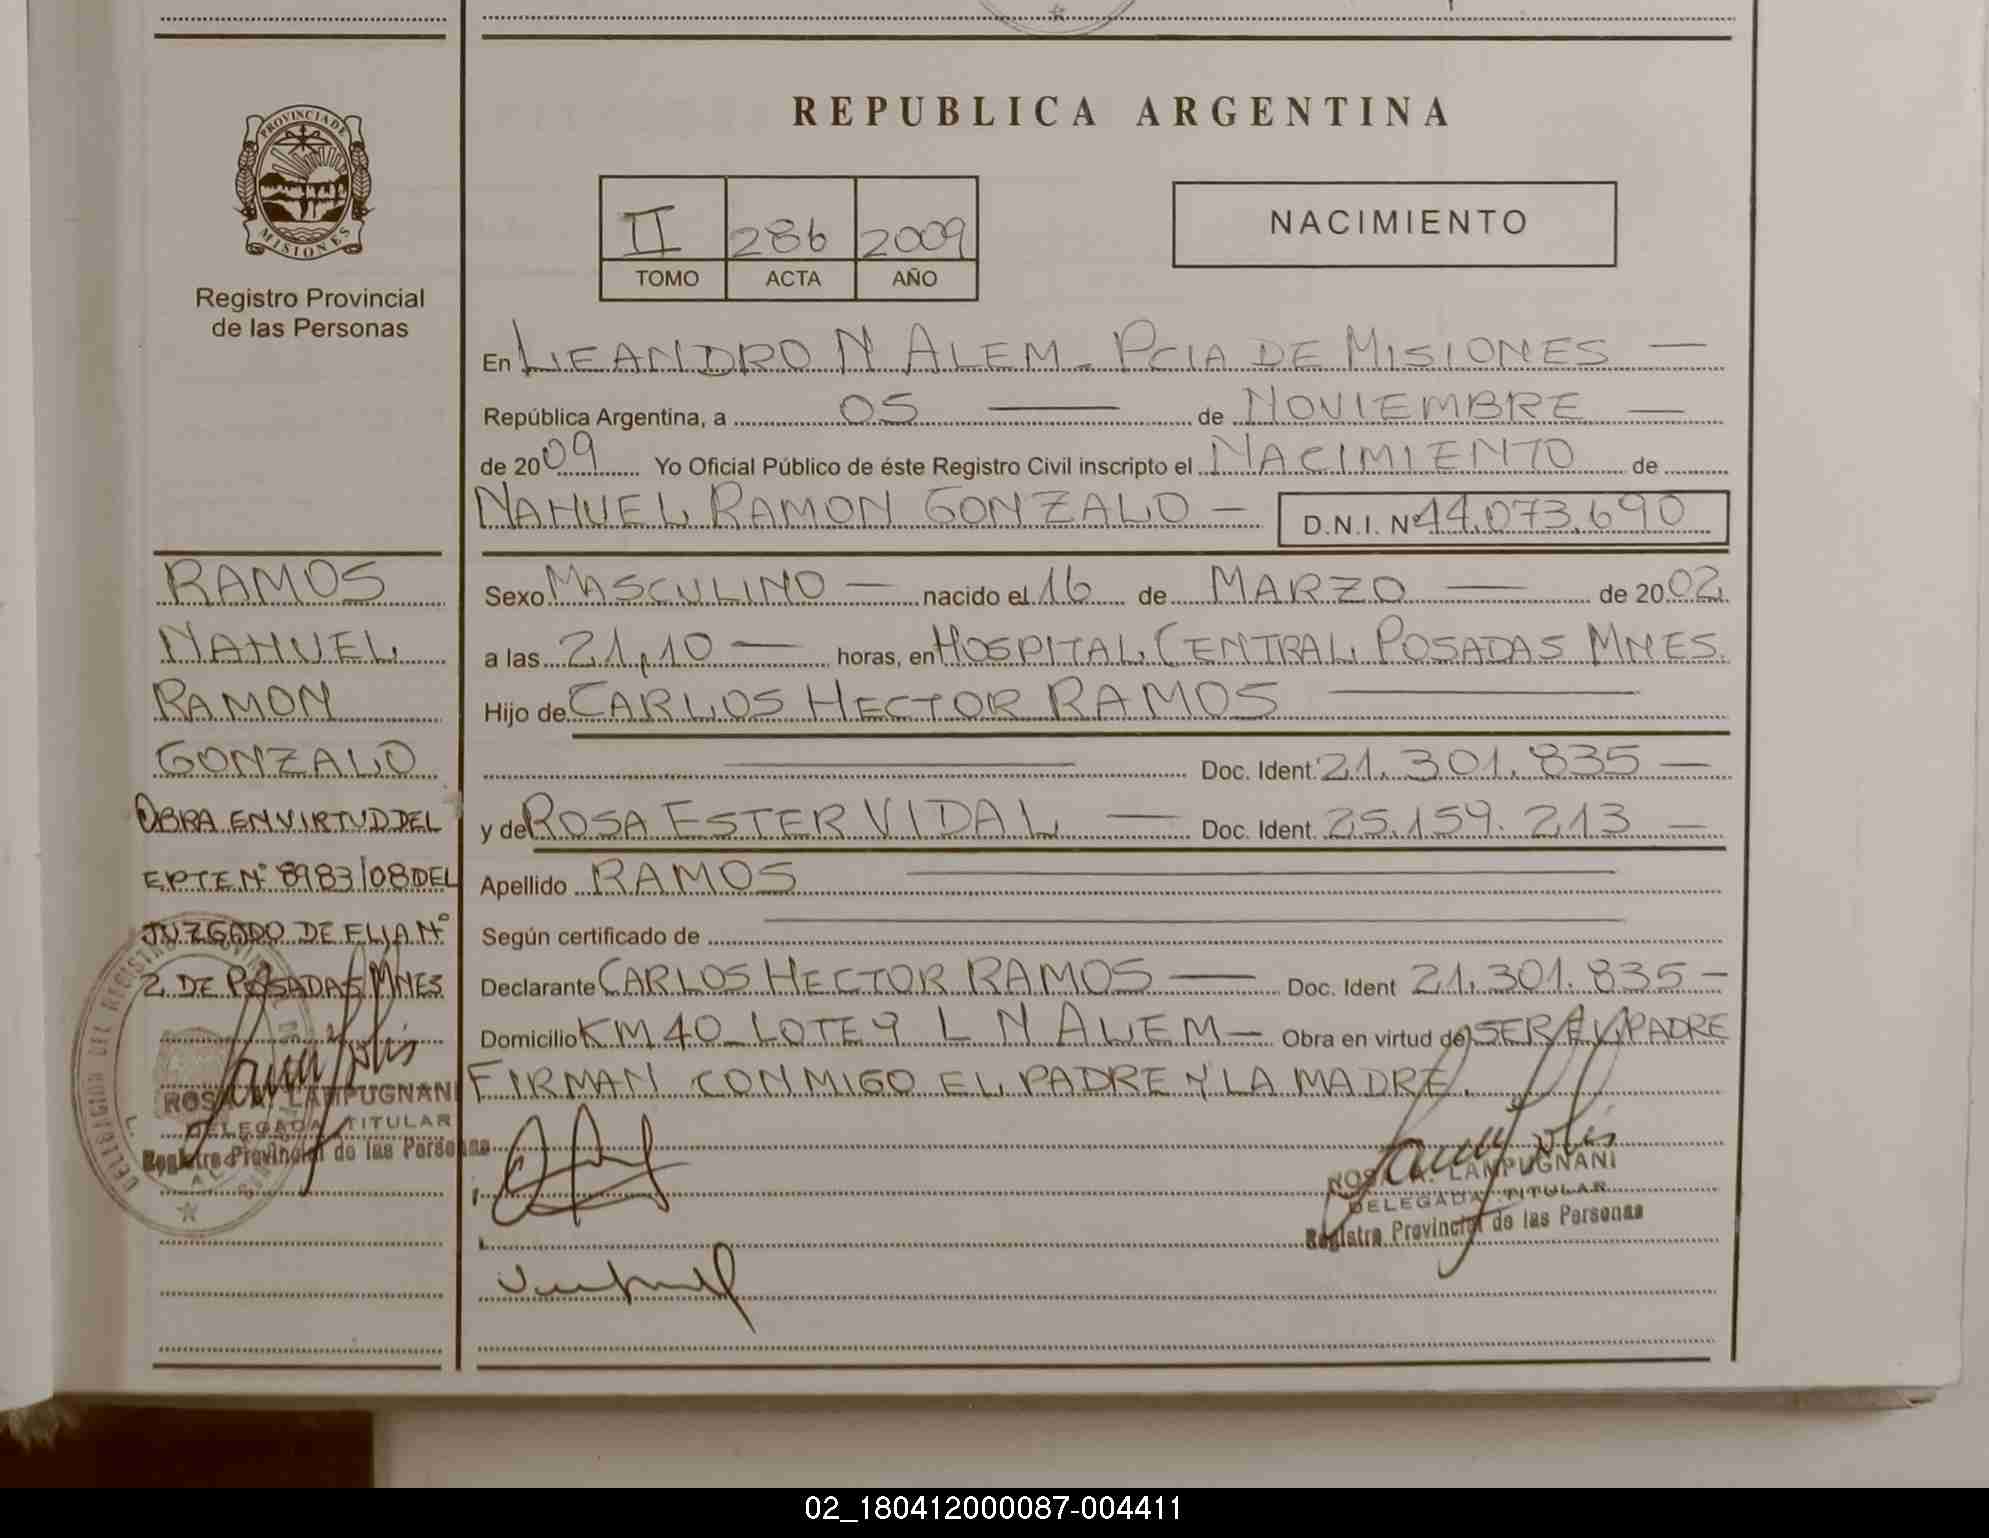 REPUBLICA ARGENTINA
PROVINCIA DE
MISIONES
Registro Provincial
de las Personas
II 286 2009
TOMO ACTA AÑO
NACIMIENTO
En LEANDRO N ALEM - PCIA DE MISIONES —
República Argentina, a 05 — de NOVIEMBRE —
de 2009 Yo Oficial Público de éste Registro Civil inscripto el NACIMIENTO de
NAHUEL RAMON GONZALO — D.N.I. Nº 44.073.690
RAMOS
NAHUEL
RAMON
GONZALO
OBRA EN VIRTUD DEL
EPTE Nº 8983/08 DEL
JUZGADO DE FLIA Nº
2 DE POSADAS MNES
ROSA A. LAMPUGNANI
DELEGADA TITULAR
Registro Provincial de las Personas
Sexo MASCULINO — nacido el 16 de MARZO — de 2002
a las 21,10 — horas, en HOSPITAL CENTRAL POSADAS MNES.
Hijo de CARLOS HECTOR RAMOS —
Doc. Ident. 21.301.835 —
y de ROSA ESTER VIDAL — Doc. Ident. 25.159.213 —
Apellido RAMOS —
Según certificado de —
Declarante CARLOS HECTOR RAMOS — Doc. Ident 21.301.835 —
Domicilio KM 40 - LOTE 9 L N ALEM — Obra en virtud de SER EL PADRE
FIRMAN CONMIGO EL PADRE Y LA MADRE.
ROSA A. LAMPUGNANI
DELEGADA TITULAR
Registro Provincial de las Personas
02_180412000087-004411